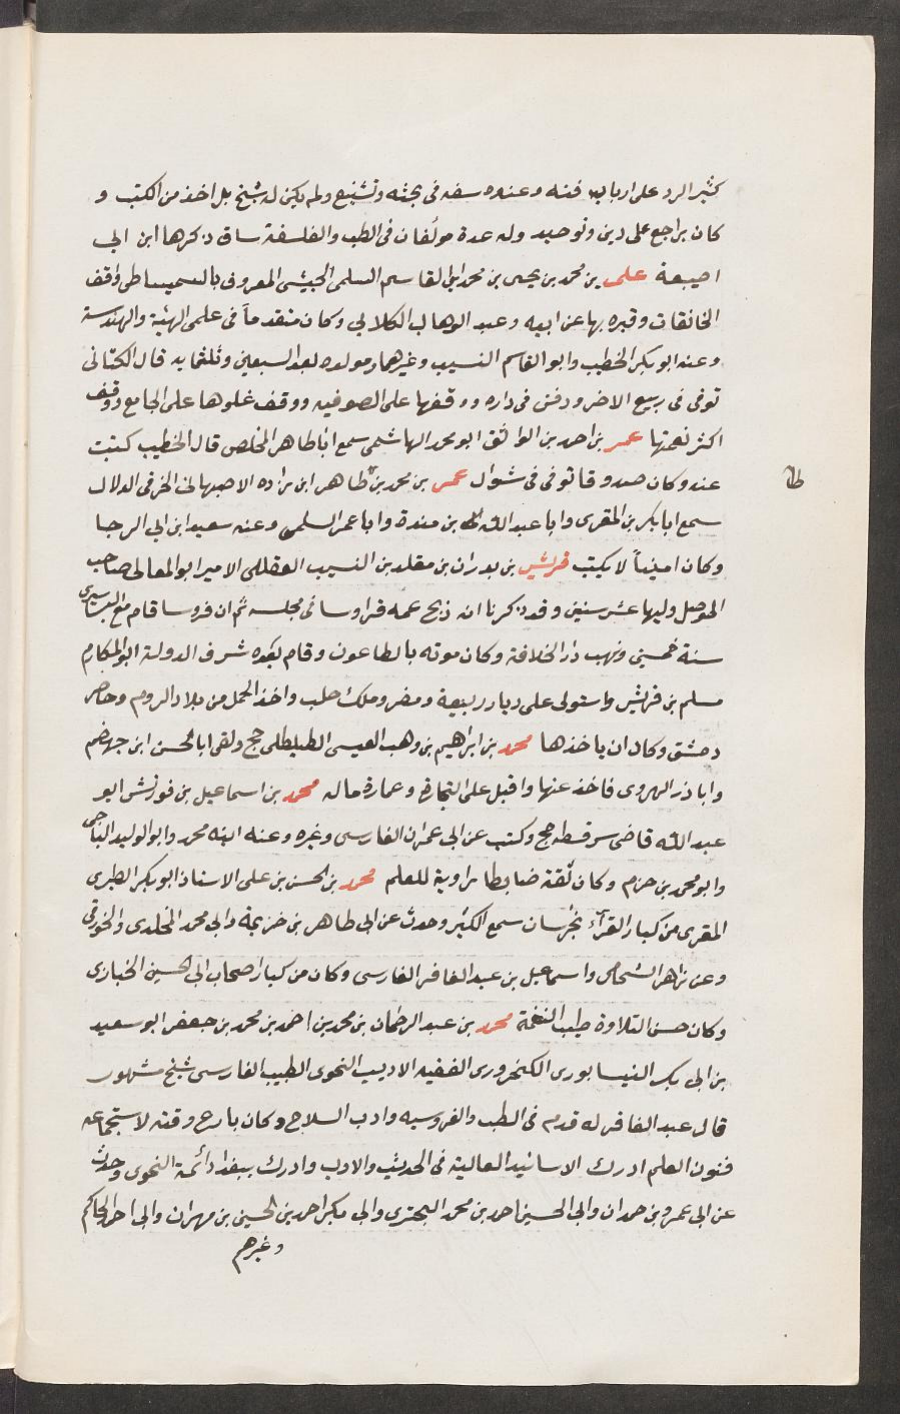 كثير الرد على ارباب فنه وعنده سفه فى بحثه وتشنيع ولم يكن له شيخ بل اخذ من الكتب و
كان يراجع على دين وتوحيد وله عدة مولفان فى الطب والفلسفة ساق ذكرها ابن ابى
اصيبعة على بن محمد بن يحيى بن محمد ابو القاسم السلمى الحبيشى المعروف بالسميساطى واقف
الخانقات وقبره بها عن ابيه وعبد الوهاب الكلابي وكان متقدماً فى علمى الهيئة والهندسة
وعنه ابو بكر الخطيب وابو القاسم النسيب وغيرهما ومولده بعد السبعين وثلثمايه قال الكتانى
توفى فى ربيع الاخر ودفن فى داره ووقفها على الصوفيه ووقف غلوها على الجامع ووقف
اكثر نعمتها عمر بن احمد بن الواثق ابو محمد الهاشمى سمع اباطاهر المخلص قال الخطيب كتبت
عنه وكان صدوقا توفى فى شوال عمر بن محمد بن طاهر ابن زاده الاصبهانى الخزفى الدلال
سمع ابابكر بن المقرى وابا عبد الله بن مندة وابا عمر السلمى وعنه سعيد ابن ابى الرجا
وكان امنياً لا يكتب قريش بن بدران بن مقلد بن النسيب العقللى الامير ابو المعالى صاحب
الموصل وليها عشر سنين وقد ذكرنا ان ذبح عمه قراوسا فى مجلسه ثم ان قروسا قام مع البساسيرى
سنة خمسين ونهب دار الخلافة وكان موته بالطاعون وقام بعده شرف الدولة ابو المكارم
مسلم بن قريش واستولى على ديار ربيعة ومضر وملك حلب واخذ الحمل من بلاد الروم وحاصر
دمشق وكاد ان ياخذها محمد بن ابراهيم بن وهب العيسى الطليطلى حج ولقى ابا الحسن ابن جهضم
وابا ذر الهروى فاخذ عنها واقبل على التجارة وعمارة ماله محمد بن اسماعيل بن فورتش ابو
عبد الله قاضى سرقسطه حج وكتب عن ابى عمران الفارسى وغيره وعنه ابنه محمد وابو الوليد الباجى
وابو محمد بن حزم وكان ثقة ضابطا راوية للعلم محمد بن الحسن بن على الاستاذ ابو بكر الطبرى
المقرى من كبار القرآء بخرسان سمع الكثير وحدث عن ابى طاهر بن خزيمة وابى محمد المخلدى والخوزقى
وعن زاهر الشحامى واسماعيل بن عبد الغافر الفارسى وكان من كبار اصحاب ابى الحسين الخبازى
وكان حسن التلاوة طيب النغمة محمد بن عبد الرحمان بن محمد بن احمد بن محمد بن جعفر ابو سعيد
بن ابى بكر النيسابورى الكنجرورى الفقيه الاديب النحوى الطبيب الفارسى شيخ مشهور
قال عبد الغافر له قدم فى الطب والفروسيه وادب السلاح وكان بارع وقته لاستجماعه
فنون العلم ادرك الاسانيد العالية فى الحديث والادب وادرك ببغداد ائمة النحوى وحدث
عن ابى عمرو بن حمدان وابى الحسين احمد بن محمد البحترى وابى بكر احمد بن الحسين بن مهران وابى احمد الحاكم
وغيرهم